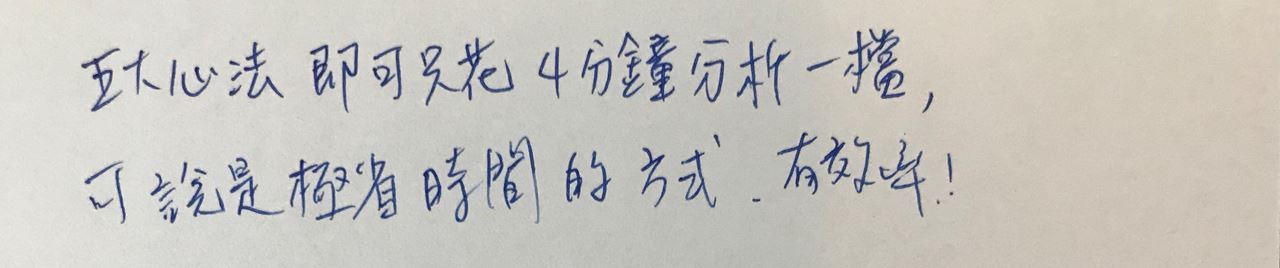 五大心法 即可只花 4分鐘分析一檔,
可說是極省時間的方式. 有效率!